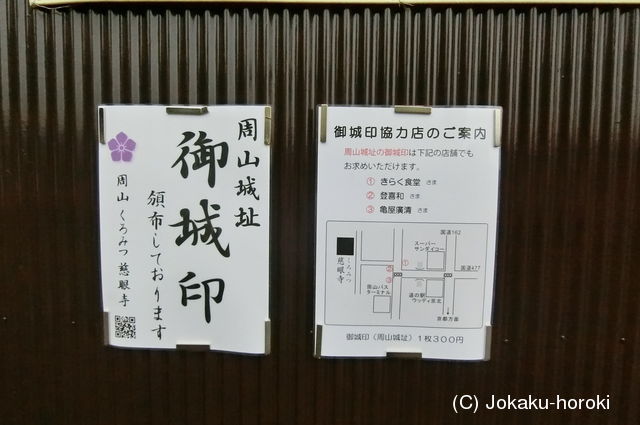 周山城址
御城印
頒布しております
周山 くろみつ 慈眼寺
御城印協力店のご案内
周山城址の御城印は下記の店舗でも
お求めいただけます。
① きらく食堂 さま
② 登喜和 さま
③ 亀屋廣清 さま
国道162
スーパー
サンダイコー
くろみつ
慈眼寺
①
②
③
国道477
周山バス
ターミナル
道の駅
ウッディ京北
京都方面
御城印(周山城址)1枚300円
(C) Jokaku-horoki